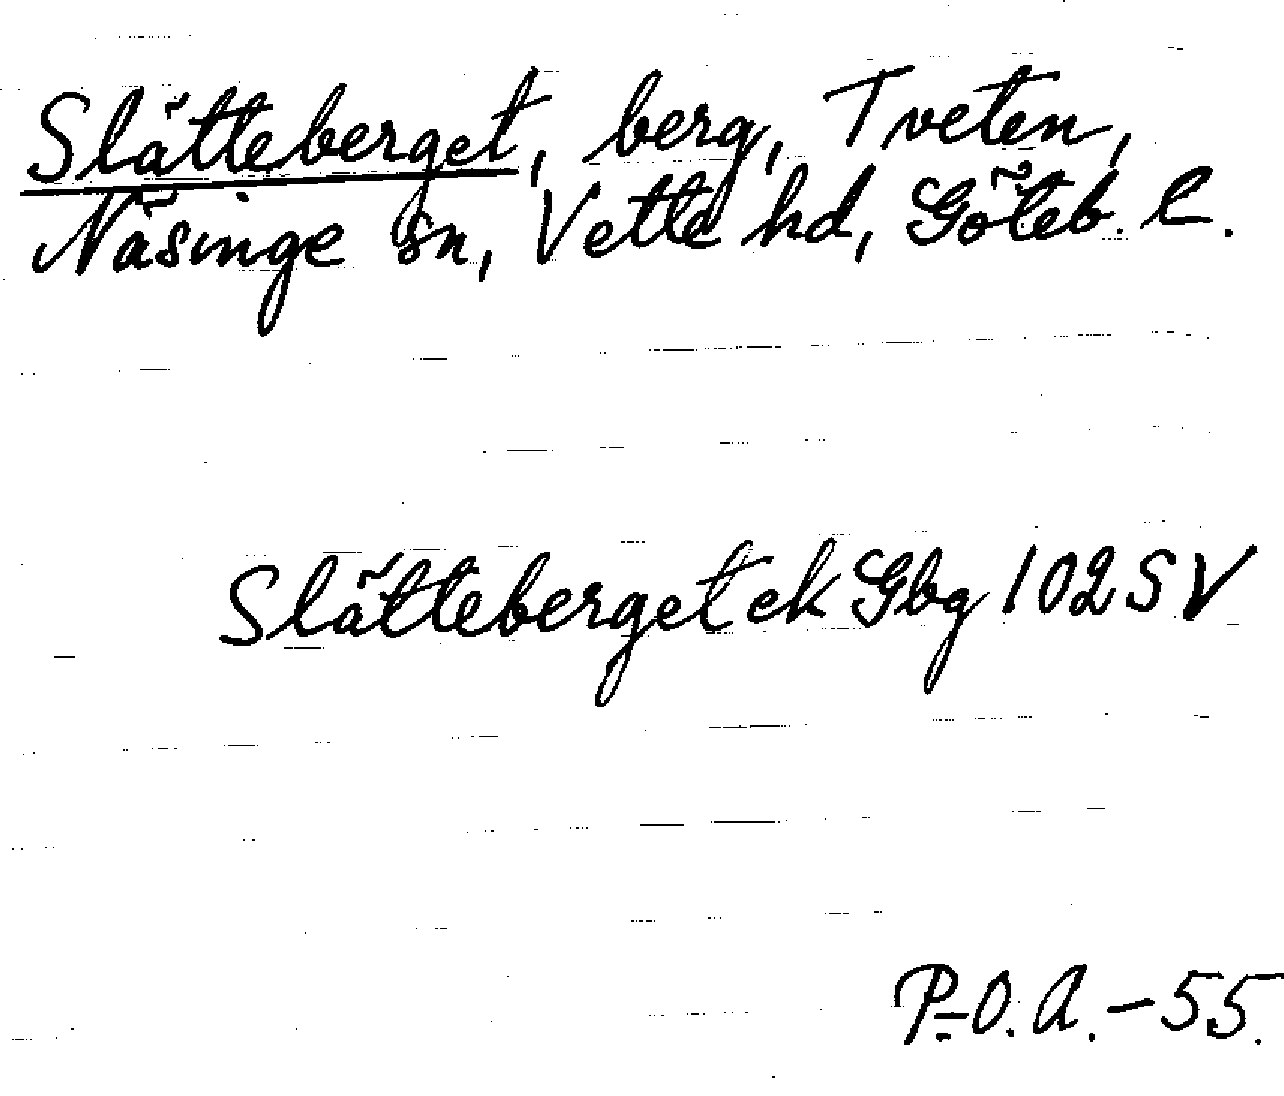 Slätteberget, berg, Tveten,
Näsinge sn, Vette hd, Göteb. l.
Slätteberget ek Gbg 102 SV
P.-O. A. - 55.